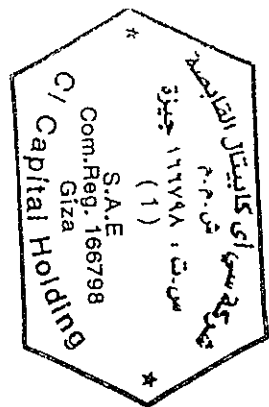 شركة سى اى كابيتال القابضة
ش.م.م
س.ت : ١٦٦٧٩٨ جيزة
( 1 )
S.A.E
Com.Reg. 166798
Giza
C/ Capital Holding